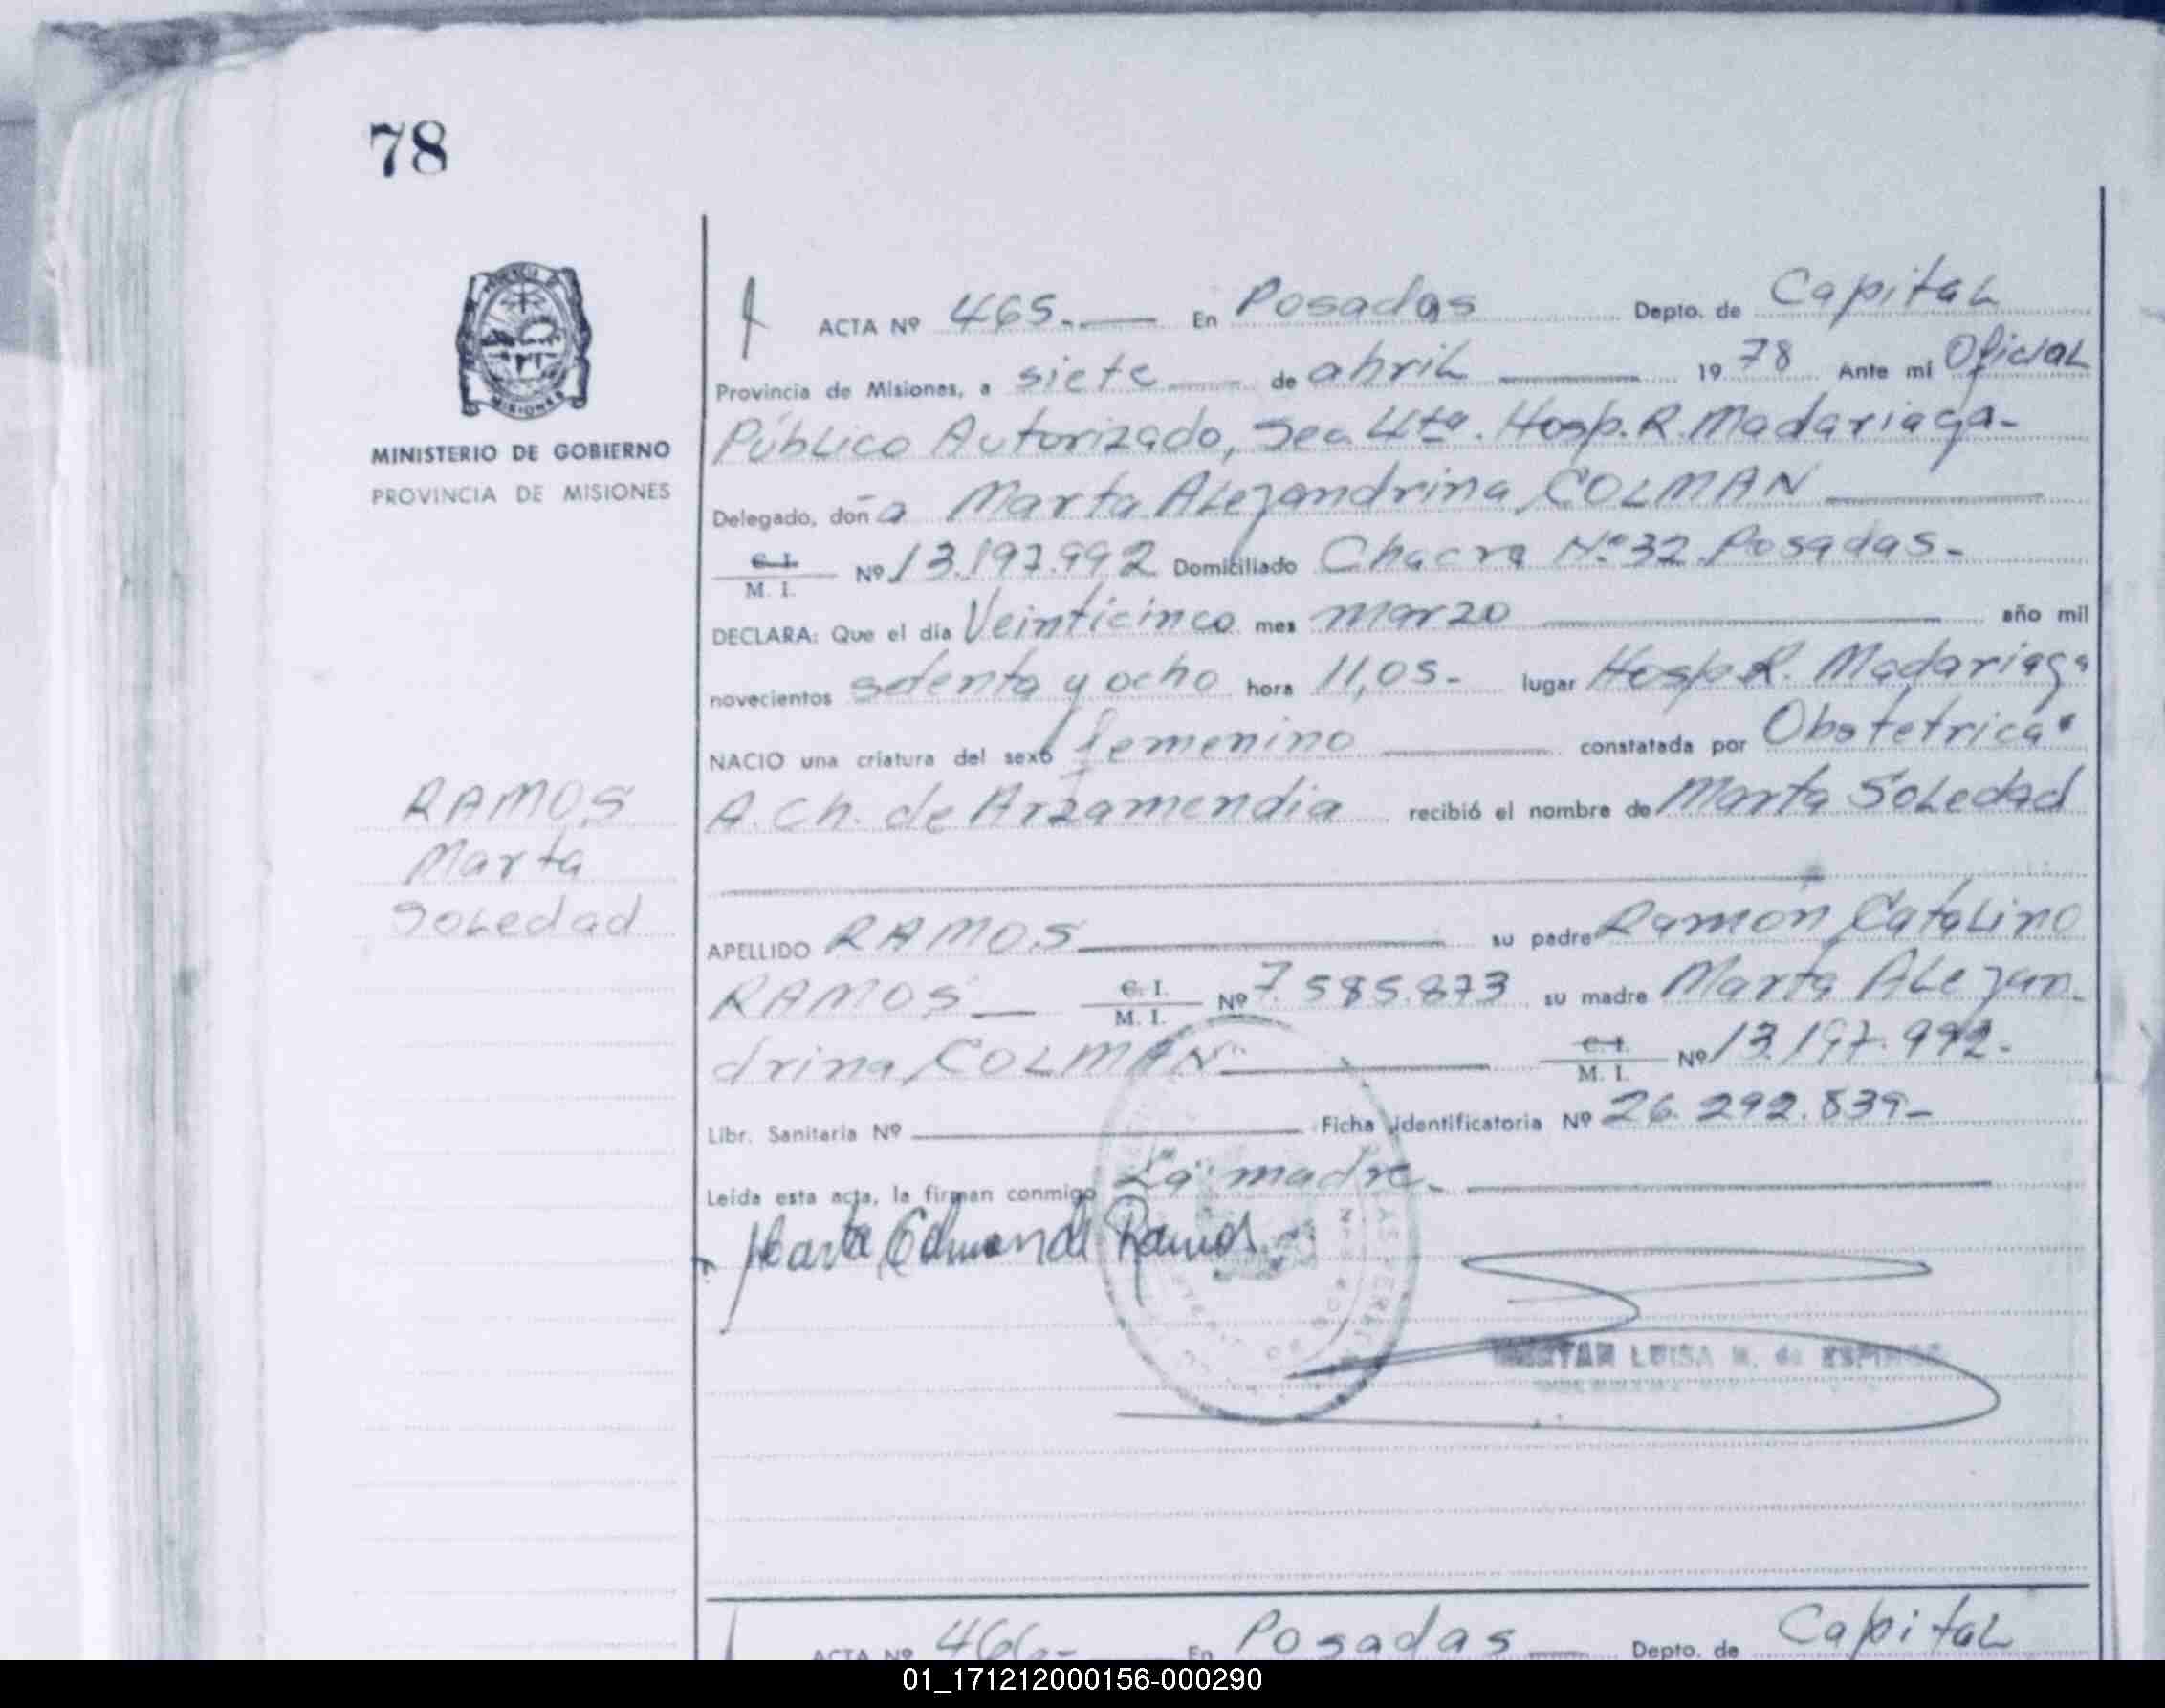 78
PROVINCIA DE
MISIONES
MINISTERIO DE GOBIERNO
PROVINCIA DE MISIONES
RAMOS
Marta
Soledad
ACTA Nº 465.- En Posadas Depto. de Capital
Provincia de Misiones, a siete de abril 1978 Ante mi Oficial
Público Autorizado, Sec. 4ta. Hosp. R. Madariaga-
Delegado, doña Marta Alejandrina COLMAN
C. I.
M. I. Nº 13.197.992 Domiciliado Chacra Nº 32. Posadas-
DECLARA: Que el día Veinticinco mes marzo año mil
novecientos setenta y ocho hora 11,05- lugar Hosp R. Madariaga
NACIO una criatura del sexo femenino constatada por Obstetrica
A. Ch. de Arzamendia recibió el nombre de Marta Soledad
APELLIDO RAMOS su padre Ramón Catalino
RAMOS C. I.
M. I. Nº 7.585.873 su madre Marta Alejan-
drina COLMAN C. I.
M. I. Nº 13.197.992-
Libr. Sanitaria Nº Ficha identificatoria Nº 26.292.839-
Leída esta acta, la firman conmigo La madre-
Marta Ramos
LUISA
ACTA Nº 466- En Posadas Depto. de Capital
01_171212000156-000290